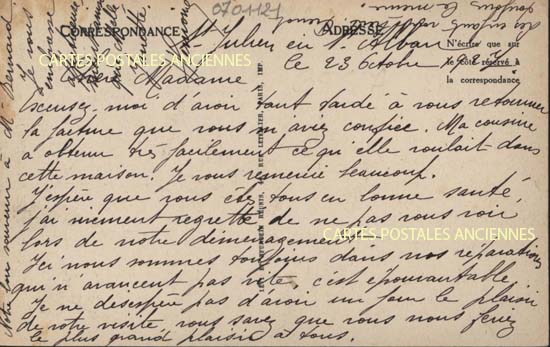 0701121
CORRESPONDANCE
ADRESSE
N'écrire que sur
le côté réservé à
la correspondance
St Julien en St Alban
Le 23 Octobre
Chère Madame
Excusez-moi d'avoir tant tardé à vous retourner
la facture que vous m'aviez confiée. Ma cousine
a obtenu très facilement ce qu'elle voulait dans
cette maison. Je vous remercie beaucoup.
J'espère que vous êtes tous en bonne santé,
j'ai vivement regretté de ne pas vous voir
lors de notre déménagement.
Ici nous sommes toujours dans nos réparations
qui n'avancent pas vite, c'est épouvantable.
Je ne désespère pas d'avoir un jour le plaisir
de votre visite, vous savez que vous nous feriez
le plus grand plaisir à tous.
Notre bon souvenir à Mr Bernard.
Je vous
embrasse
CARTES POSTALES ANCIENNES
CARTES POSTALES ANCIENNES
CARTES POSTALES ANCIENNES